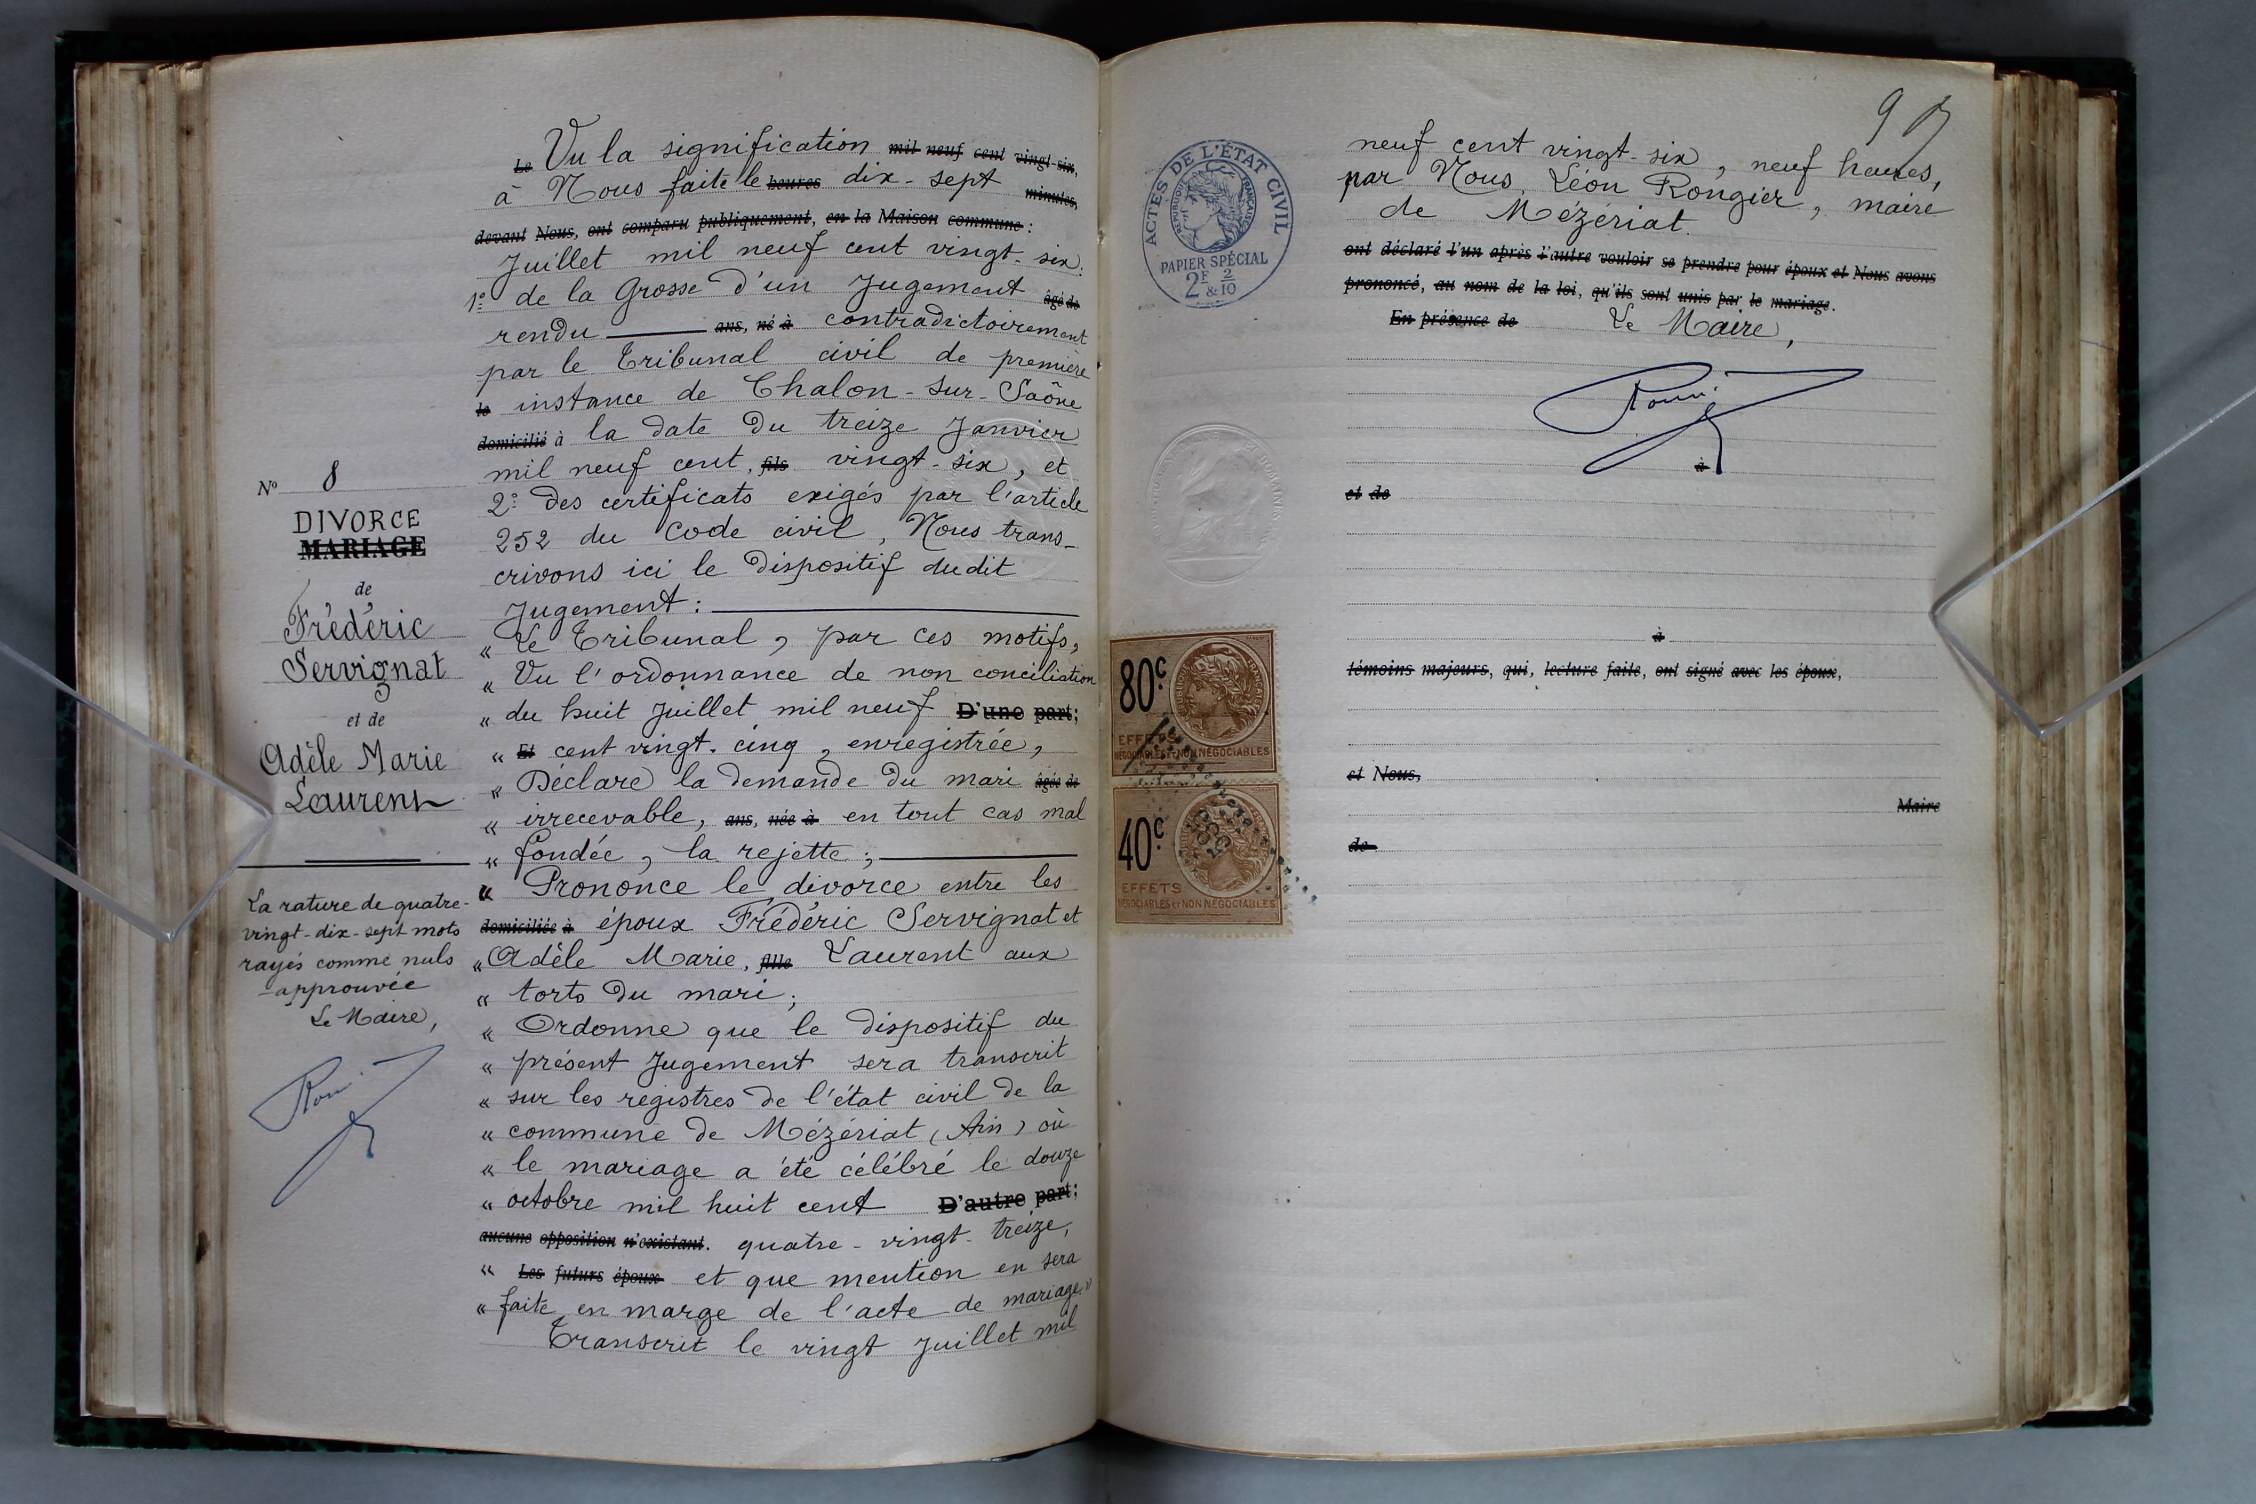 Le Vu la signification mil neuf cent vingt-six,
à Nous faite le heures dix-sept minutes,
devant Nous, ont comparu publiquement, en la Maison commune :
Juillet mil neuf cent vingt-six :
1° de la Grosse d'un Jugement âgé de
rendu ans, né à contradictoirement
par le Tribunal civil de première
le instance de Chalon-sur-Saône
domicilié à la date du treize Janvier
mil neuf cent, fils vingt-six, et
2° des certificats exigés par l'article
252 du Code civil, Nous trans-
crivons ici le dispositif dudit
Jugement :
« Le Tribunal, par ces motifs,
« Vu l'ordonnance de non conciliation
« du huit Juillet mil neuf D'une part ;
« Et cent vingt-cinq, enregistrée,
« Déclare la demande du mari âgée de
« irrecevable, ans, née à en tout cas mal
« fondée, la rejette ;
« Prononce le divorce entre les
domiciliée à époux Frédéric Servignat et
« Adèle Marie, fille Laurent aux
« torts du mari ;
« Ordonne que le dispositif du
« présent Jugement sera transcrit
« sur les registres de l'état civil de la
« commune de Mézériat (Ain) où
« le mariage a été célébré le douze
« octobre mil huit cent D'autre part ;
aucune opposition n'existant. quatre-vingt-treize,
« Les futurs époux et que mention en sera
« faite en marge de l'acte de mariage. »
Transcrit le vingt Juillet mil
N° 8
DIVORCE
MARIAGE
de
Frédéric
Servignat
et de
Adèle Marie
Laurent
La rature de quatre-
vingt-dix-sept mots
rayés comme nuls
approuvée
Le Maire,
ACTES DE L'ÉTAT CIVIL
RÉPUBLIQUE FRANÇAISE
PAPIER SPÉCIAL
2F 2
& 10
80c
EFFETS
NÉGOCIABLES ET NON NÉGOCIABLES
40c
EFFETS
NÉGOCIABLES ET NON NÉGOCIABLES
neuf cent vingt-six, neuf heures,
par Nous, Léon Rongier, maire
de Mézériat.
ont déclaré l'un après l'autre vouloir se prendre pour époux et Nous avons
prononcé, au nom de la loi, qu'ils sont unis par le mariage.
En présence de Le Maire,
à
et de
à
témoins majeurs, qui, lecture faite, ont signé avec les époux,
et Nous,
Maire
de